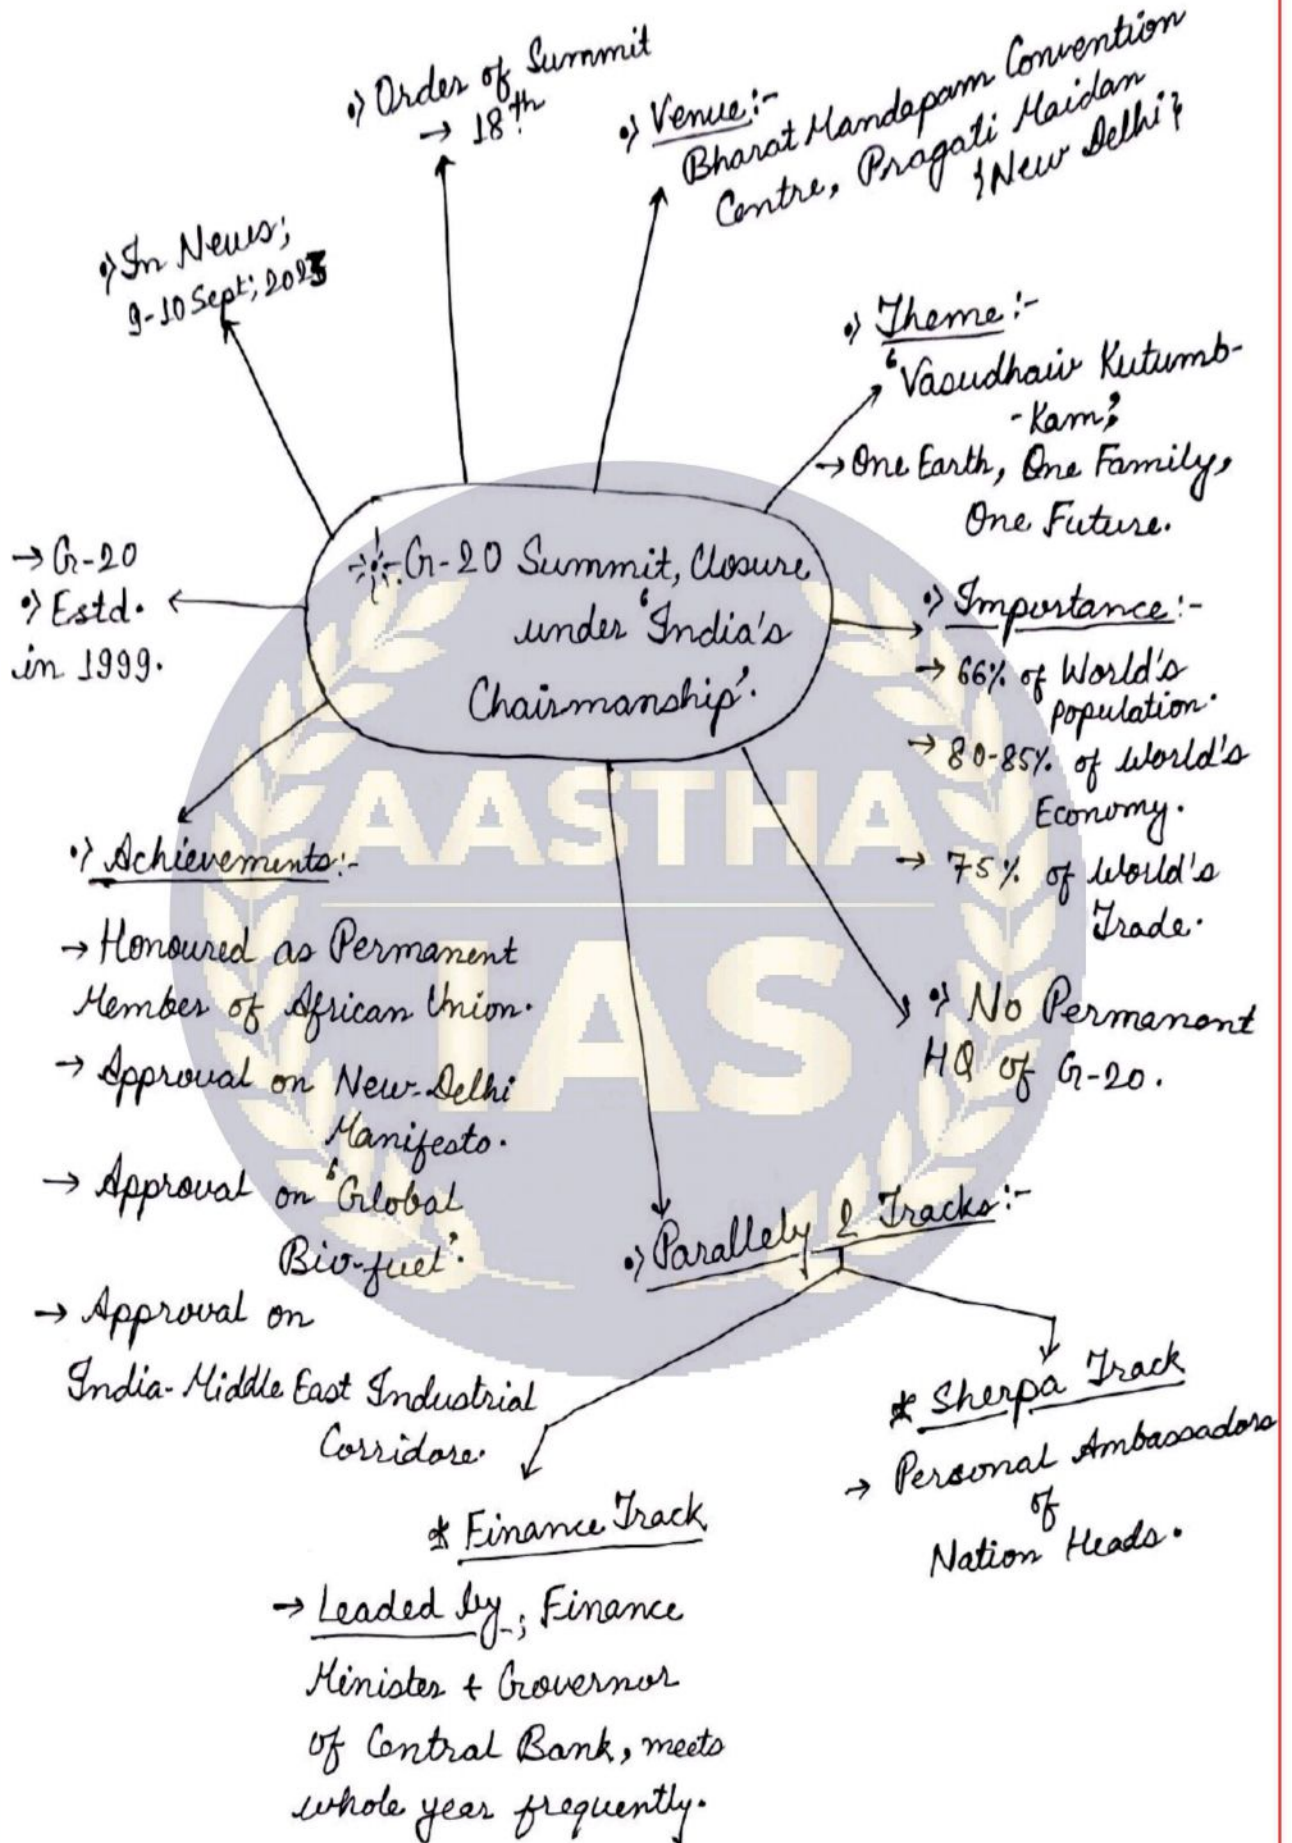 •) Order of Summit
→ 18th
•) Venue:-
Bharat Mandapam Convention
Centre, Pragati Maidan
{New Delhi}
•) In News;
9-10 Sept; 2023
•) Theme:-
'Vasudhaiv Kutumb-
-Kam'
→ One Earth, One Family,
One Future.
G-20 Summit, Closure
under 'India's
Chairmanship'.
→ G-20
•) Estd.
in 1999.
•) Importance:-
→ 66% of World's
population.
→ 80-85% of World's
Economy.
→ 75% of World's
Trade.
•) Achievements:-
→ Honoured as Permanent
Member of African Union.
→ Approval on New-Delhi
Manifesto.
→ Approval on 'Global
Bio-fuel'.
→ Approval on
India-Middle East Industrial
Corridore.
•) No Permanent
HQ of G-20.
•) Parallely 2 Tracks:-
* Sherpa Track
→ Personal Ambassadors
of
Nation Heads.
* Finance Track
→ Leaded by-; Finance
Minister + Governor
of Central Bank, meets
whole year frequently.
AASTHA
IAS